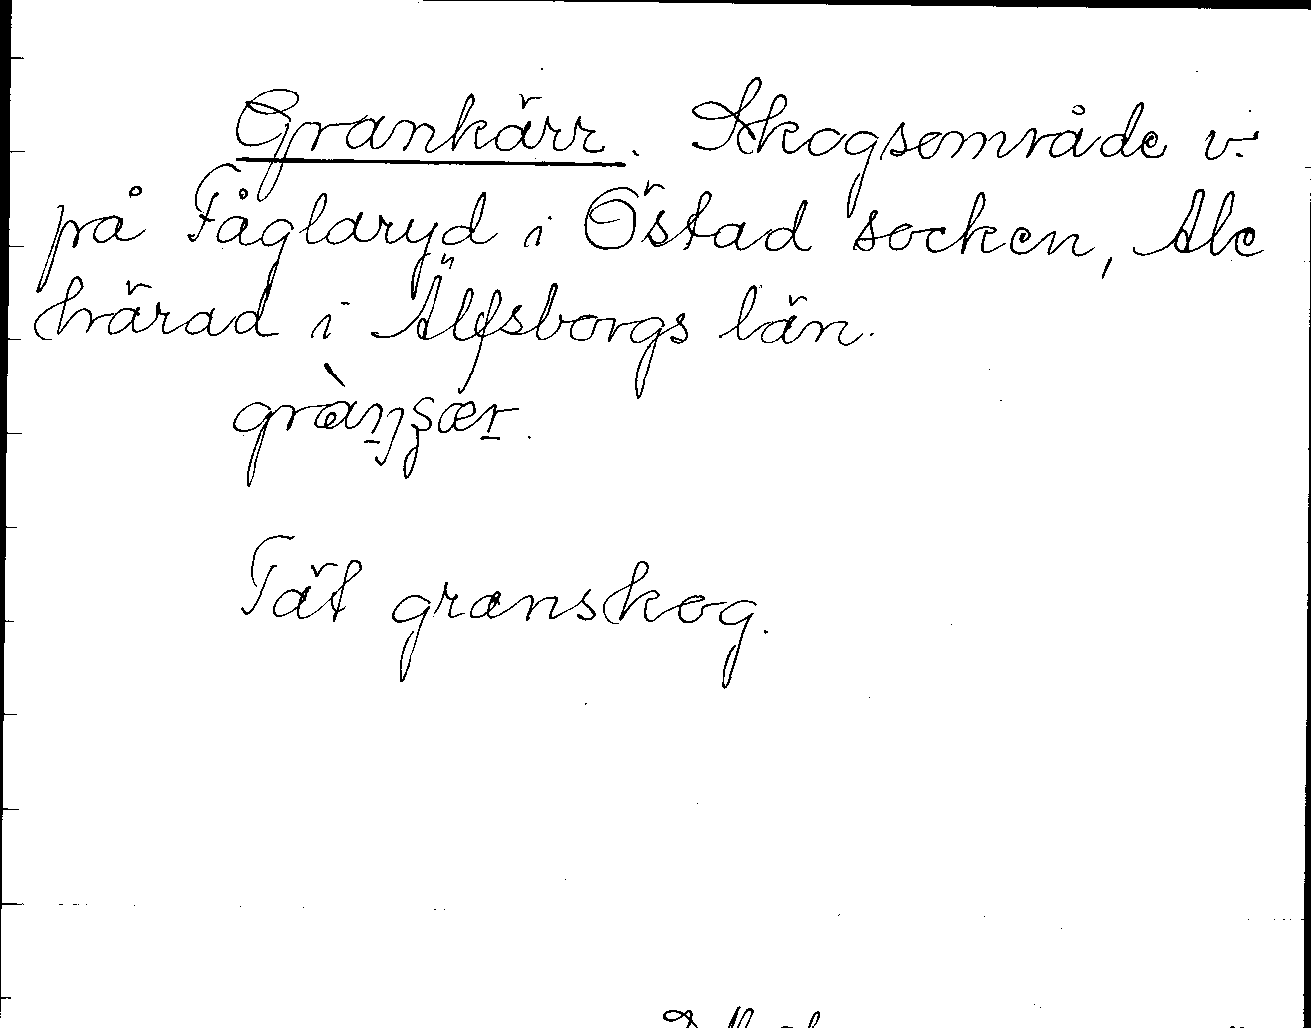 Grankärr. Skogsområde v.
på Fåglaryd i Östad socken, Ale
härad i Älfsborgs län.
Tät granskog.